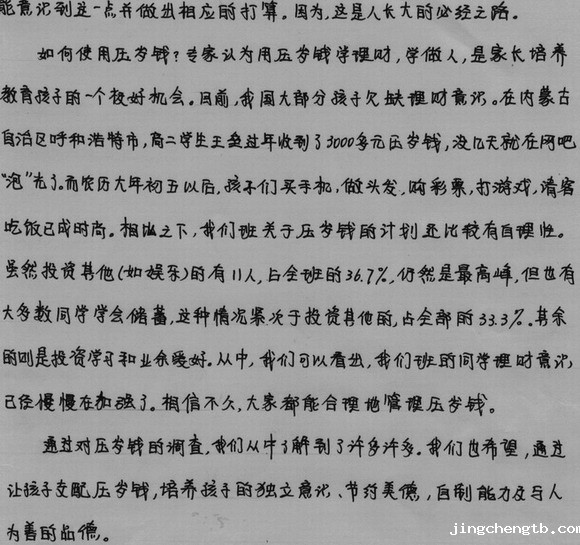 能意识到这一点并做出相应的打算。因为,这是人长大的必经之路。
如何使用压岁钱?专家认为用压岁钱学理财,学做人,是家长培养
教育孩子的一个极好机会。目前,我国大部分孩子欠缺理财意识。在内蒙古
自治区呼和浩特市,高二学生王奎过年收到了3000多元压岁钱,没几天就在网吧
“泡”光了。而农历大年初五以后,孩子们买手机,做头发,购彩票,打游戏,请客
吃饭已成时尚。相比之下,我们班关于压岁钱的计划还比较有自理性。
虽然投资其他(如娱乐)的有11人,占全班的36.7%,仍然是最高峰,但也有
大多数同学学会储蓄,这种情况紧次于投资其他的,占全部的33.3%。其余
的则是投资学习和业余爱好。从中,我们可以看出,我们班的同学理财意识
已经慢慢在加强了。相信不久,大家都能合理地管理压岁钱。
通过对压岁钱的调查,我们从中了解到了许多许多。我们也希望,通过
让孩子支配压岁钱,培养孩子的独立意识、节约美德,自制能力及与人
为善的品德。
jingchengtb.com